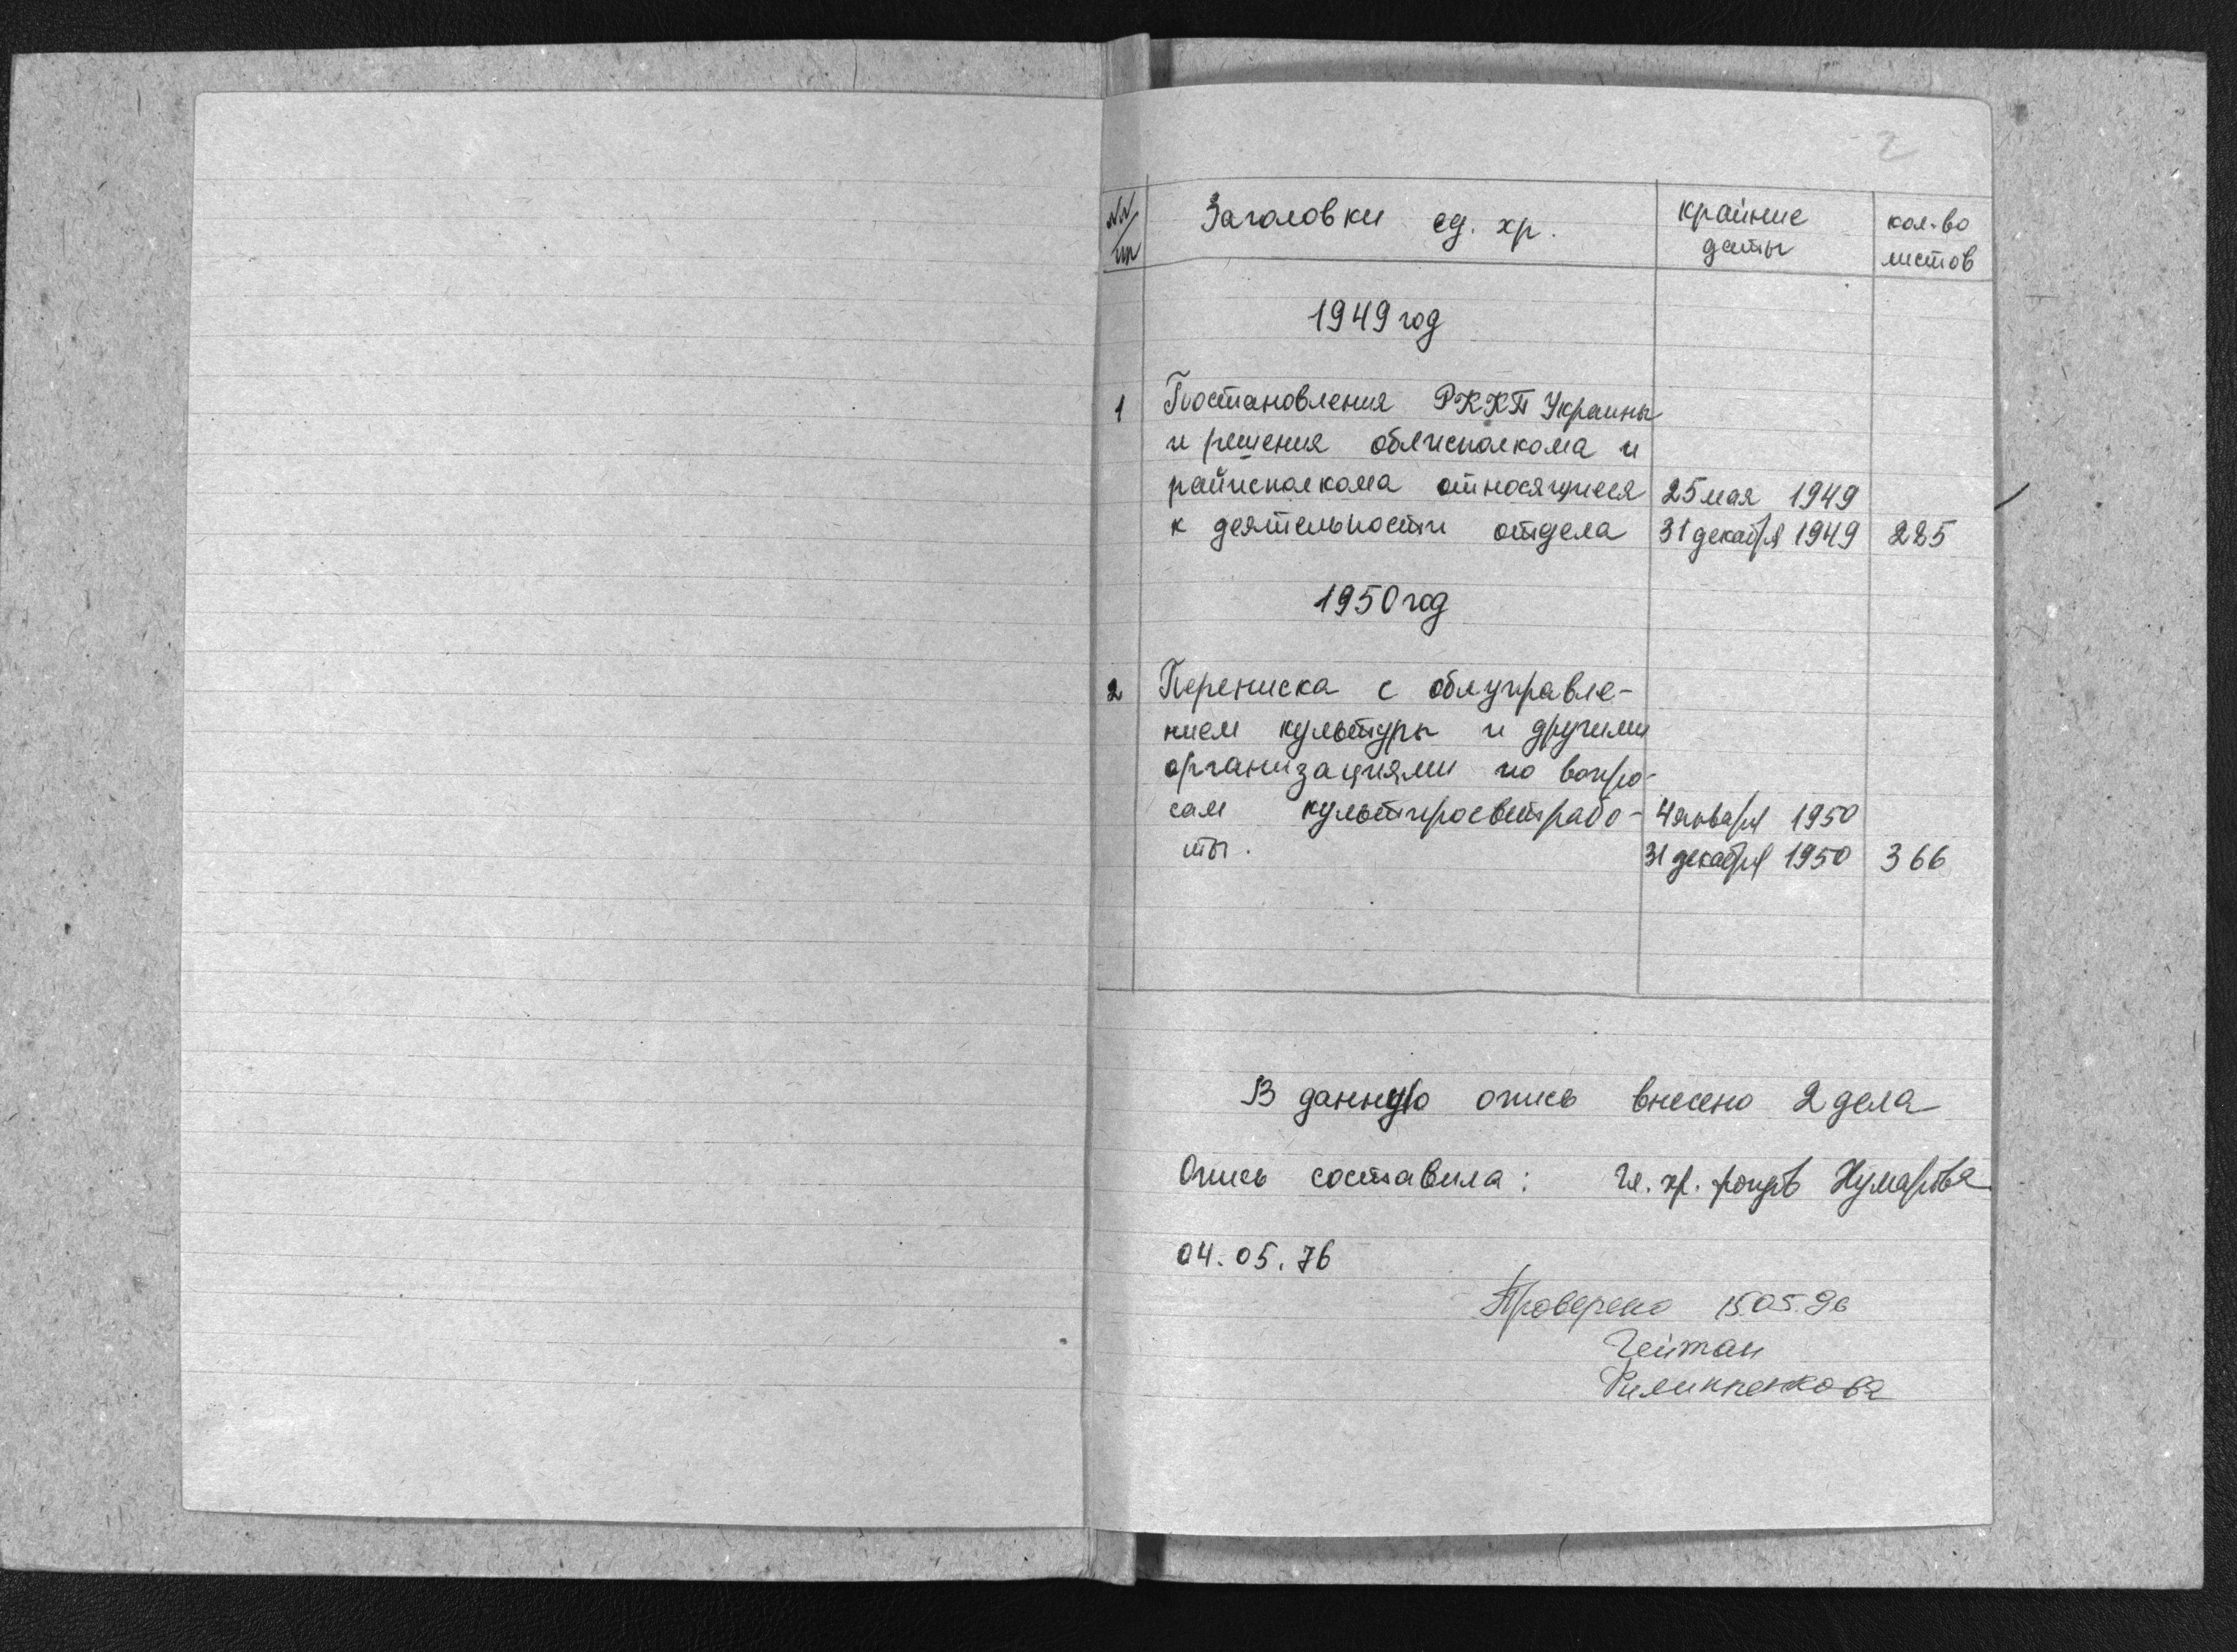 2
№№ пп Заголовки ед. хр. крайние даты кол-во листов
1949 год
1 Постановления РККП Украины
и решения облисполкома и
райисполкома относящиеся 25 мая 1949
к деятельности отдела 31 декабря 1949 225
1950 год
2 Переписка с облуправле-
нием культуры и другими
организациями по вопро-
сам культпросветрабо- 4 января 1950
ты. 31 декабря 1950 366
В данную опись внесено 2 дела
Опись составила: Гл. хр. фондов
04.05.76
Проверено 15.05.96
Гейтан
Филиппенкова